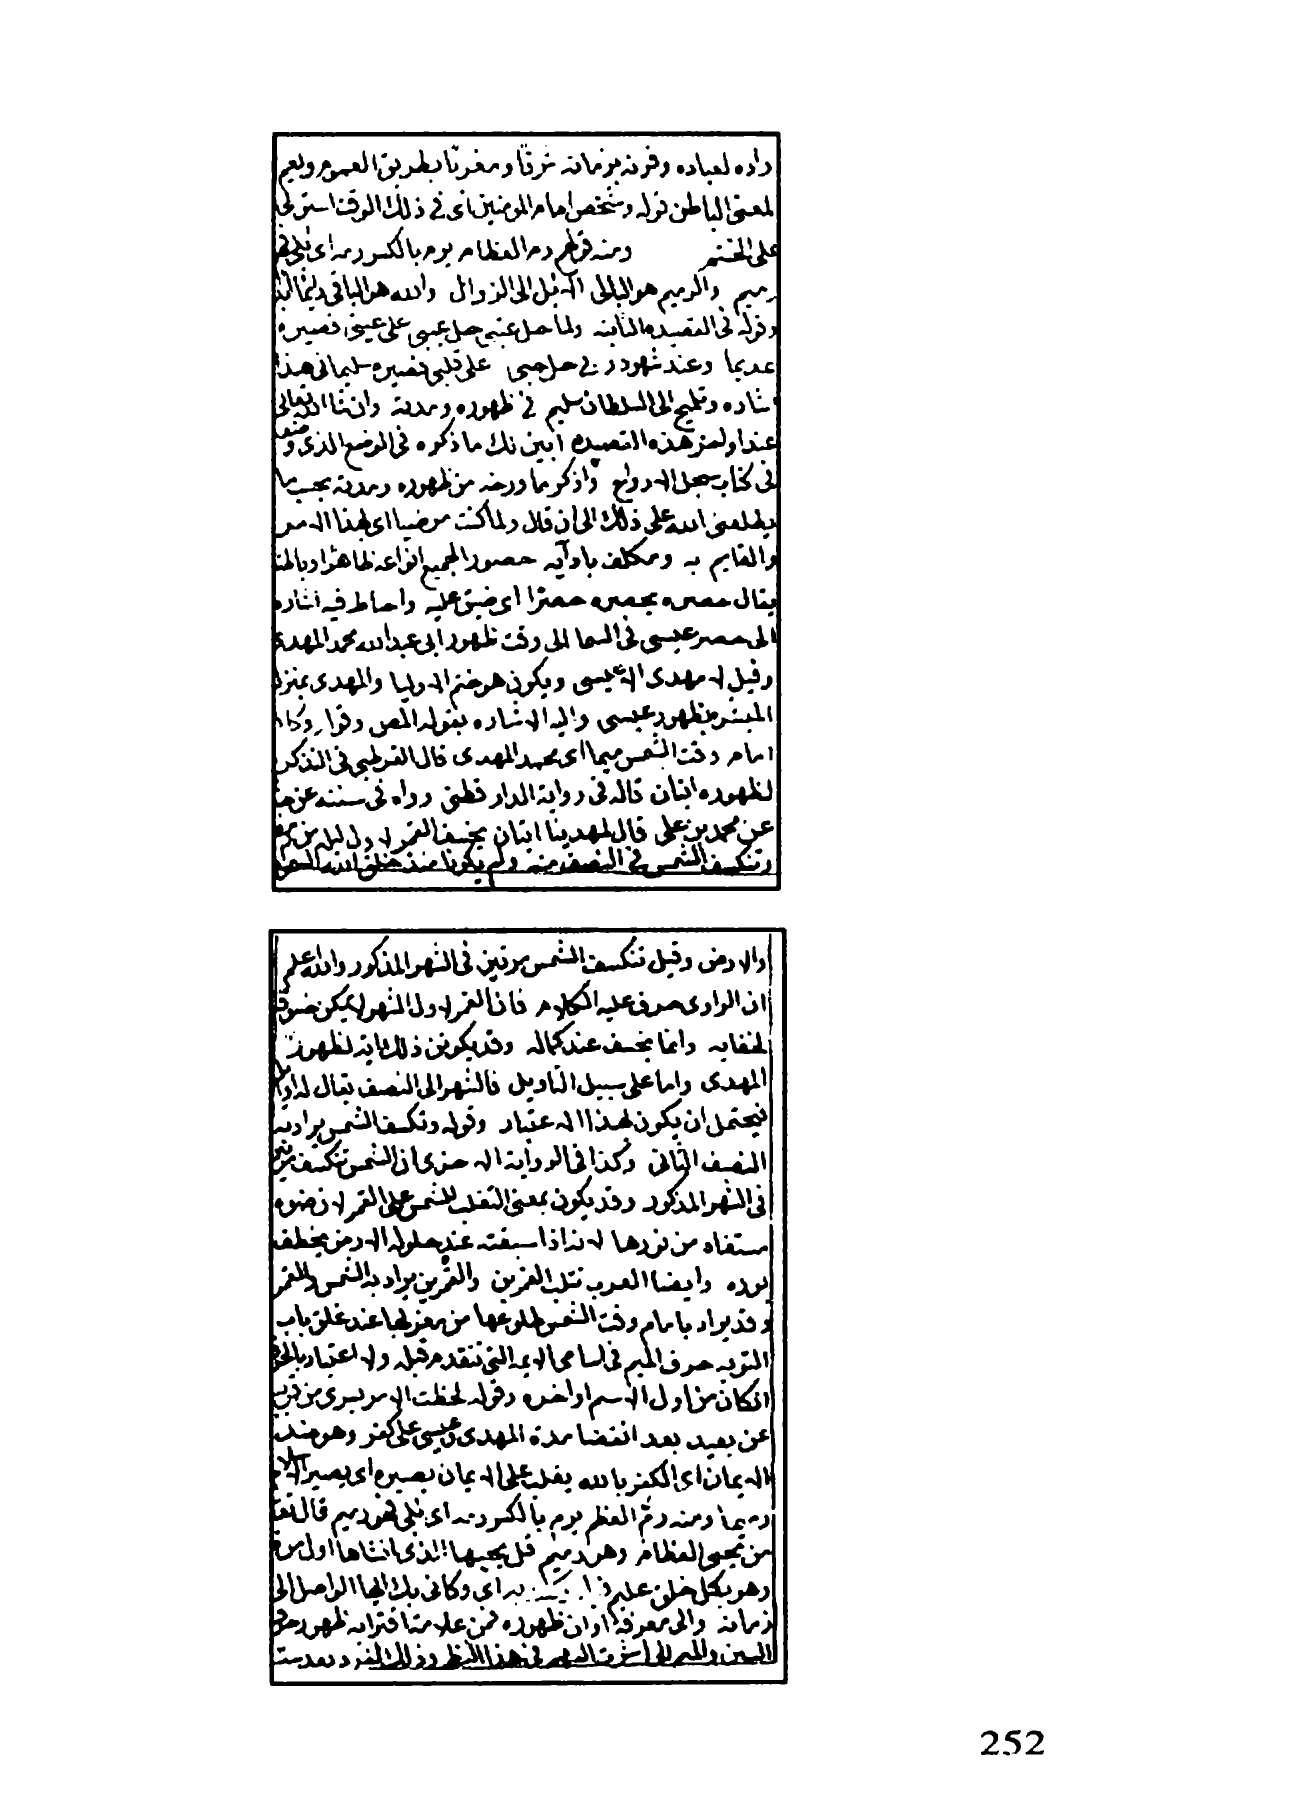 راده لعباده وقرنه بزمانه شرقا ومغربا بطريق العموم ويعم
لمعنى الباطن قوله وشخص امام المومنين اى فى ذلك الوقت استولى
على الختم ومنه قولهم رم العظام يرم بالكسر رمه اى بلى فهو
رميم والرميم هو البالى الايل الى الزوال والله هو الباقى
وقوله فى القصيده الثانيه ولما حل عينى حل عيسى على عينى نصيره
عديما وعند شهود حل جيمى على قلبى نصيره سليما فى هذا
اشاره وتلميح الى السلطان سليم فى ظهوره ومدته وان شا الله تعالى
عند اواخر هذه القصيده ابين لك ما ذكره فى الوضع الذى وضعه
فى كتاب سجل الارواح واذكر ما ورخه من ظهوره ومدته بحسب ما
يطلعنى الله على ذلك الى ان قال ولما كنت مرضيا اى لهذا الامر
والقايم به ومكلف بادايه حصور الجميع انواعه ظاهرا وبالمنا
يقال حصره يحصره حصرا اى ضيق عليه واحاط فيه اشاره
الى حصر عيسى فى السما الى وقت ظهور ابى عبد الله محمد المهدى
وقيل لا مهدى الا عيسى ويكون هو ختم الاوليا والمهدى بمنزلة
المبشر بظهور عيسى واليه الاشاره بقوله المص وقوله وكان
امام وقت الشمس ميما اى محمد المهدى قال القرطبى فى التذكره
لظهوره ايتان قاله فى رواية الدار قطنى رواه فى سننه عن
عن محمد بن على قال لمهدينا ايتان يخسف القمر لاول ليله من رمضان
وتنكسف الشمس فى النصف منه ولم يكونا منذ خلق الله السموات
والارض وقيل تنكسف الشمس مرتين فى الشهر المذكور والله اعلم
ان الراوى حرف عليه الكلام فان القمر لاول الشهر لا يمكن خسوفه
لخفايه وانما يخسف عند كماله وقد يكون من ذلك اية لظهور
المهدى واما على سبيل التاويل فالشهر الى النصف يقال له اوايل
فيحتمل ان يكون لهذا الاعتبار وقوله وتكسف الشمس يراد به
النصف الثانى وكذا فى الرواية الاخرى ان الشمس تنكسف مرتين
فى الشهر المذكور وقد يكون بمعنى التغلب للشمس على القمر لان ضوه
مستفاد من نورها لانه اذا سبقته عند حلوله الارض يخطف
نوره وايضا العرب تغلب القمرين والقمرين يراد به الشمس والقمر
وقد يراد بامام وقت الشمس طلوعها من مغربها عند غلق باب
التوبه حرف الميم فى اسامى الايمه التى تتقدم قبله ولا اعتبار بالحرف
ان كان من اول الاسم او اخره وقوله لحظت الامر يسرى من قريب
عن بعيد بعد انقضا مدة المهدى وعيسى على كفر وهو ضد
الايمان اى الكفر بالله يغلب على الايمان يصيره اى يصير الاسلام
رميما ومنه رم العظم يرم بالكسر رمه اى بلى فهو رميم قال تعالى
من يحيى العظام وهى رميم قل يحييها الذى انشاها اول مره
وهو بكل خلق عليم اى وكانى بك ايها الواصل الى
زمانه والى معرفة اوان ظهوره فمن علامة اقترانه ظهور حرف
السين والميم الى اخرت القهم فى هذا النظر وذلك